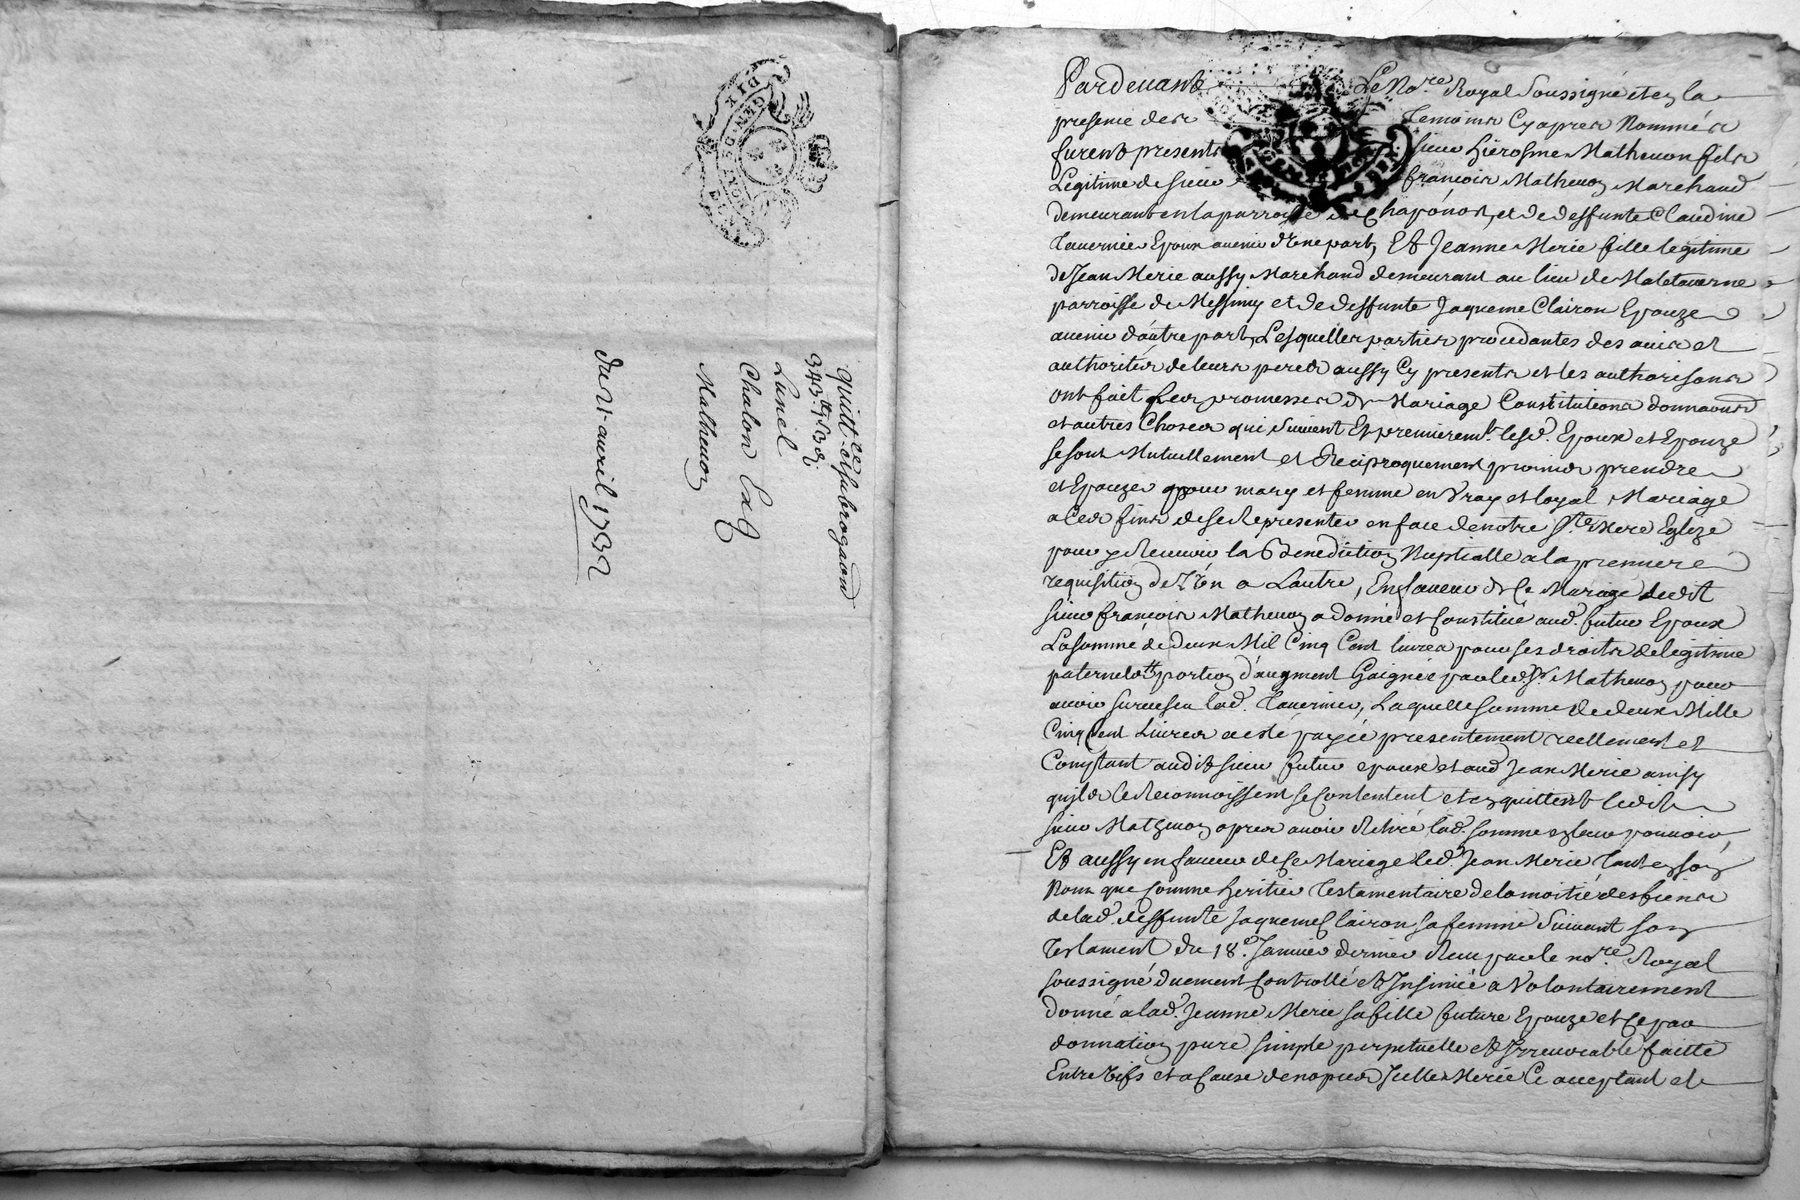 Quitt.ce et subrogaon
343 lt 9 s 3 d
Lunel
Chalon
Mathevon
du 21 avril 1732
GEN. DE LYON
DIX
Pardevant Le No.re Royal Soussigné et en la
presence des Temoins Cy apres Nommés
furent presents sieur Hierosme Mathevon fils
Legitime de sieur françois Mathevon Marchand
demeurant en la parroisse de Chaponost, et de deffunte Claudine
Tavernier Epoux avenir d'Une part, Et Jeanne Merie fille legitime
de Jean Merie aussy Marchand demeurant au lieu de Maletaverne
parroisse de Messimy et de deffunte Jaqueme Clairon Epouze
avenir d'autre part, Lesquelles parties procedantes des avis et
authorités de leurs peres aussy Cy presents et les authorisans
ont fait Les promesses de Mariage Constitutions donnaons
et autres Choses qui suivent Et premierem.t lesd. Epoux et Epouze
se sont Mutuellement et Reciproquement promis prendre
et Epouzer pour mary et femme en Vray et loyal Mariage
a Ces fins de se Representer en face de notre S.te Mere Eglize
pour y Recevoir la Benediction Nuptialle a la premiere
requisition de L'Un a Lautre, En faveur de Ce Mariage ledit
sieur francois Mathevon a donné et Constitué aud. futur Epoux
La somme de deux Mil Cinq Cent livres pour ses droits de legitime
paternelle portion d'augment Gaignée par led. S.r Mathevon pour
avoir survescu lad. Tavernier, Laquelle somme de deux Mille
Cinq Cent Livres a esté payée presentement reellement et
Comptant audit sieur futur epoux et aud Jean Merie ainsy
quils le Reconnoissent se Contentent et en quittent ledit
sieur Mathevon apres avoir Retiré lad. somme en leur pouvoir,
Et aussy en faveur de Ce Mariage led. Jean Merie Tant en son
Nom que Comme heritier Testamentaire de la moitié des biens
de lad. deffunte Jaqueme Clairon sa femme Suivant son
Testament du 18.e Janvier dernier Receu par le no.re Royal
soussigné duement Controllé et Insinüé a Volontairement
donné a lad. Jeanne Merie sa fille future Epouze et Ce par
donnation pure simple perpetuelle et Irrevocable faitte
Entre Vifs et a Cause de nopces Icelle Merie Ce acceptant et